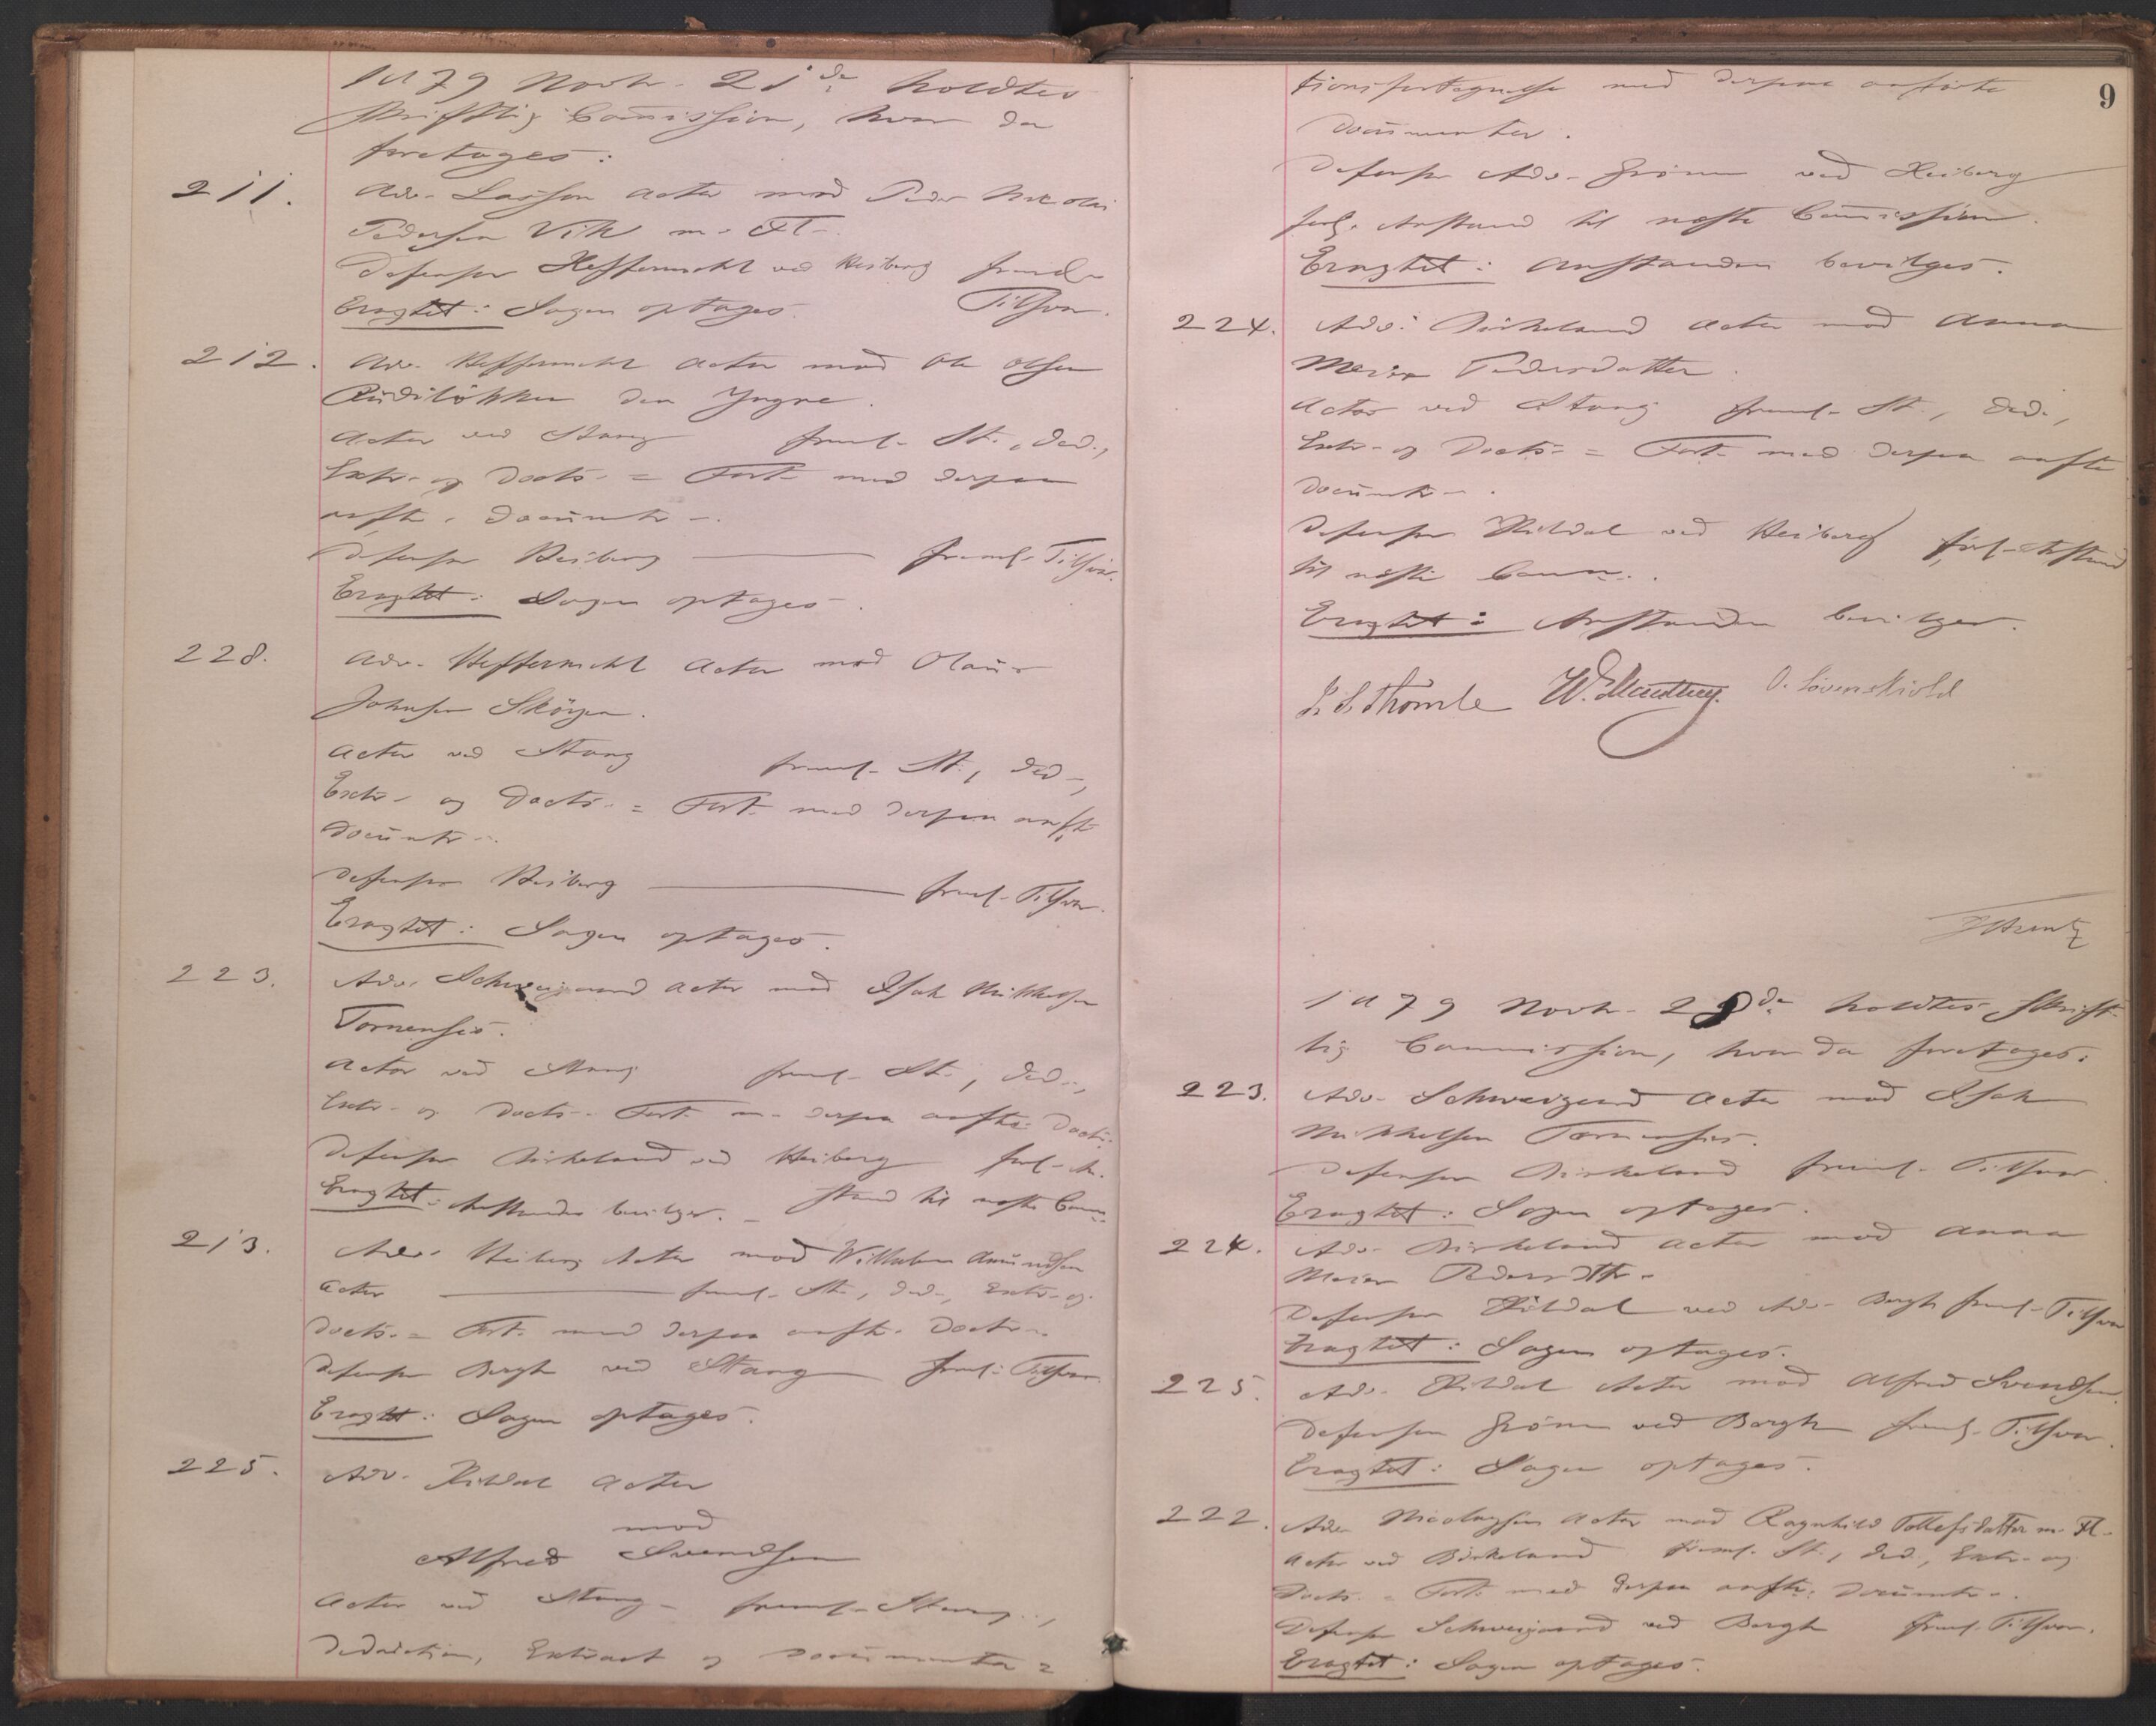 1879 Novbr. 21de holdtes
skriftlig Commission, hvor da
foretoges:
211. Adv. Lasson Actor mod Peder Nicolai
Pedersen Vik m. Fl.
Defensor Heffermehl ved Heiberg freml.
Eragtet: Sagen optages. Tilsvar.
212. Adv. Heffermehl Actor mod Ole Olsen
Rudiløkken den Yngre.
Actor ved Stang freml. St., Ded.,
Extr. og Docts. = Fort. med derpaa
anfte. Documtr.
Defensor Heiberg freml. Tilsvar.
Eragtet: Sagen optages.
228. Adv. Heffermehl Actor mod Olaus
Johnsen
Actor ved Stang freml. St., Ded.,
Extr. og Docts. = Fort. med derpaa anfte
Documtr.
Defensor Heiberg freml. Tilsvar.
Eragtet: Sagen optages.
223. Adv. Schweigaard Actor mod Isak Mikkelsen
Tornensis.
Actor ved Stang freml. St., Ded.,
Extr. og Docts. Fort. m. derpaa anfte. Doctr.
Defensor Birkeland ved Heiberg forl. An-
Eragtet: Anstanden bevilges. stand til næste Comm.
213. Adv. Heiberg Actor mod Wilhelm Amundsen
Actor freml. St., Ded., Extr. og
Docts. = Fort. med derpaa anfte. Doctr.
Defensor Bergh ved Stang freml. Tilsvar.
Eragtet: Sagen optages.
225. Adv. Kildal Actor
mod
Alfred Svendsen
Actor ved Stang freml. Stevng.,
Deduction, Extract og Documenta =
9
tionsfortegnelse med derpaa anførte
Documenter.
Defensor Adv. Grønn ved Heiberg
forl. Anstand til næste Commission.
Eragtet: Anstanden bevilges.
224. Adv. Birkeland Actor mod Anna
Maria Pedersdatter.
Actor ved Stang freml. St., Ded.,
Extr. og Docts. = Fort. med derpaa anfte
Documtr.
Defensor Kildal ved Heiberg forl. Anstand
til næste Comm.
Eragtet: Anstanden bevilges.
I. S. Thomle O. Løvenskiold
1879 Novbr. 28de holdtes skrift-
lig Commission, hvor da foretoges:
223. Adv. Schweigaard Actor mod Isak
Mikkelsen Tornensis.
Defensor Birkeland freml. Tilsvar.
Eragtet: Sagen optages.
224. Adv. Birkeland Actor mod Anna
Maria Pedersdtr.
Defensor Kildal ved Adv. Bergh freml. Tilsvar
Eragtet: Sagen optages.
225. Adv. Kildal Actor mod Alfred Svendsen.
Defensor Grønn ved Bergh freml. Tilsvar.
Eragtet: Sagen optages.
222. Adv. Nicolaysen Actor mod Ragnhild Tollefsdatter m. Fl.
Actor ved Birkeland freml. St., Ded., Extr. og
Docts. = Fort. med derpaa anfte. Documtr.
Defensor Schweigaard ved Bergh freml. Tilsvar.
Eragtet: Sagen optages.